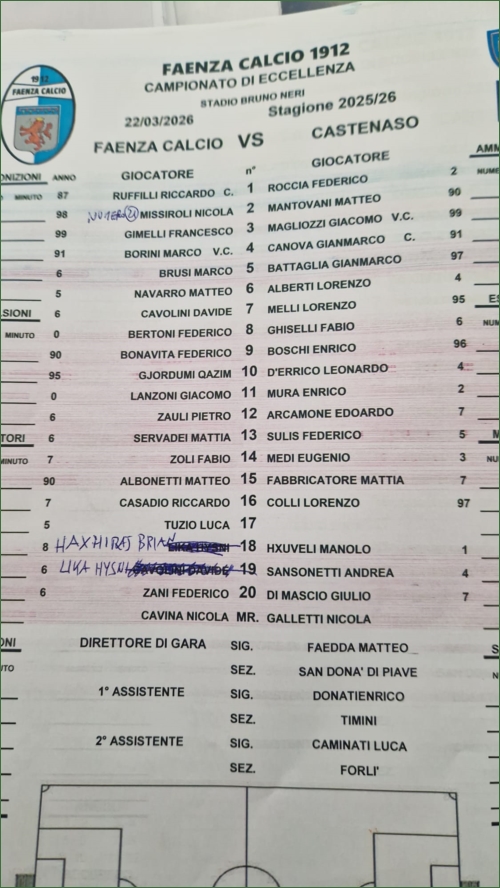 FAENZA CALCIO 1912
CAMPIONATO DI ECCELLENZA
STADIO BRUNO NERI
22/03/2026 Stagione 2025/26
FAENZA CALCIO VS CASTENASO
ANNO GIOCATORE n° GIOCATORE
MINUTO 87 RUFFILLI RICCARDO C. 1 ROCCIA FEDERICO 2
98 NUMERO 21 MISSIROLI NICOLA 2 MANTOVANI MATTEO 90
99 GIMELLI FRANCESCO 3 MAGLIOZZI GIACOMO V.C. 99
91 BORINI MARCO V.C. 4 CANOVA GIANMARCO C. 91
6 BRUSI MARCO 5 BATTAGLIA GIANMARCO 97
5 NAVARRO MATTEO 6 ALBERTI LORENZO 4
6 CAVOLINI DAVIDE 7 MELLI LORENZO 95
MINUTO 0 BERTONI FEDERICO 8 GHISELLI FABIO 6
90 BONAVITA FEDERICO 9 BOSCHI ENRICO 96
95 GJORDUMI QAZIM 10 D'ERRICO LEONARDO 4
0 LANZONI GIACOMO 11 MURA ENRICO 2
6 ZAULI PIETRO 12 ARCAMONE EDOARDO 7
6 SERVADEI MATTIA 13 SULIS FEDERICO 5
7 ZOLI FABIO 14 MEDI EUGENIO 3
90 ALBONETTI MATTEO 15 FABBRICATORE MATTIA 7
7 CASADIO RICCARDO 16 COLLI LORENZO 97
5 TUZIO LUCA 17
8 HAXHIRAJ BRIAN 18 HXUVELI MANOLO 1
6 LIKA HYSNI 19 SANSONETTI ANDREA 4
6 ZANI FEDERICO 20 DI MASCIO GIULIO 7
CAVINA NICOLA MR. GALLETTI NICOLA
DIRETTORE DI GARA SIG. FAEDDA MATTEO
SEZ. SAN DONA' DI PIAVE
1° ASSISTENTE SIG. DONATIENRICO
SEZ. TIMINI
2° ASSISTENTE SIG. CAMINATI LUCA
SEZ. FORLI'